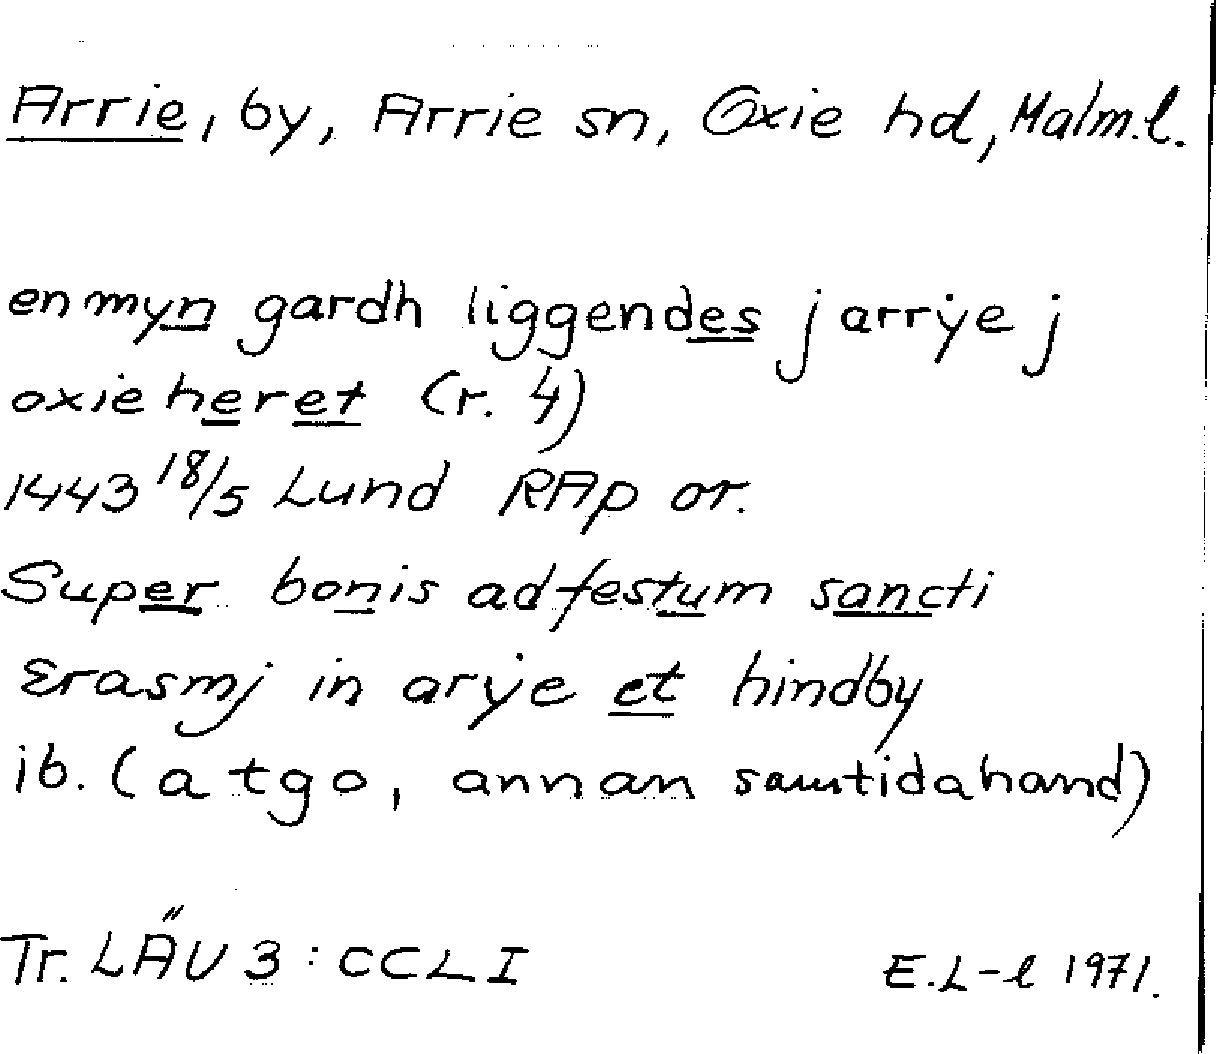 Arrie, by, Arrie sn, Oxie hd, Malm.l.
en myn gardh liggendes j arrÿe j
oxie heret (r. 4)
1443 18/5 Lund RAp or.
Super bonis ad festum sancti
Erasmj in arÿe et hindby
ib. (a tgo, annan samtida hand)
Tr. LÄU 3 : CCLI
E.L-l 1971.